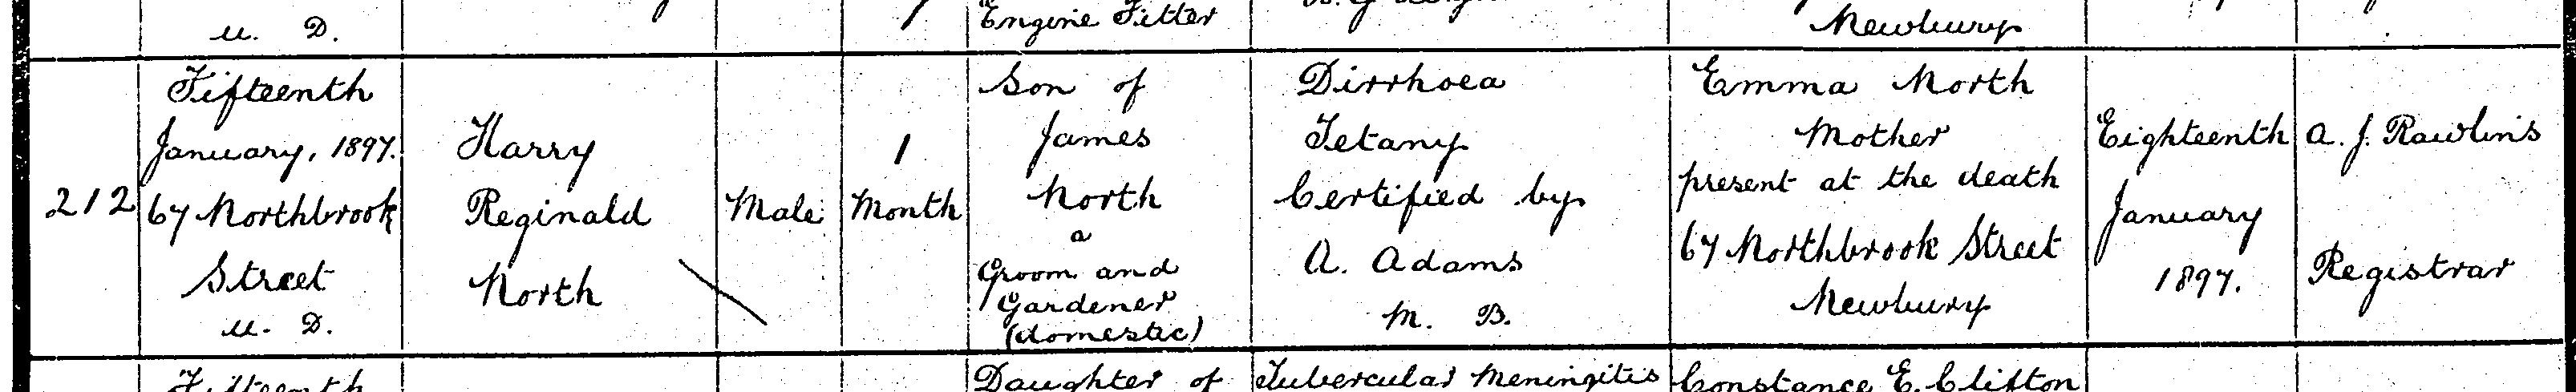 u. D.
Engine Fitter
Newbury
212
Fifteenth
January, 1897.
67 Northbrook
Street
u. D.
Harry
Reginald
North
Male
1
Month
Son of
James
North
a
Groom and
Gardener
(domestic)
Dirrhoea
Tetany
Certified by
A. Adams
M. B.
Emma North
Mother
present at the death
67 Northbrook Street
Newbury
Eighteenth
January
1897.
A. J. Rawlins
Registrar
Fifteenth
Daughter of
Tubercular Meningitis
Constance E. Clifton